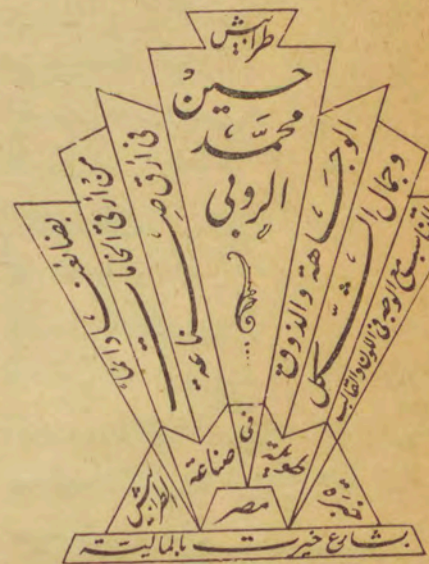 طرابيش
حسين
محمد
الروبى
الوجاهة والذوق
وجمال الشكل
التناسب مع الوجه فى اللون والقالب
فى أرقى صناعة
من أرقى الخامات
بضائعنا
فى
صناعة
الطرابيش
مصر
بشارع خيرت بالمالية